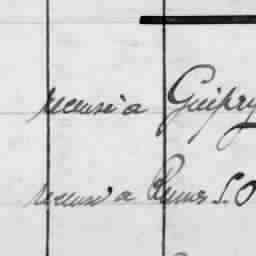 recensé à Guipry
recensé à Rennes S.O